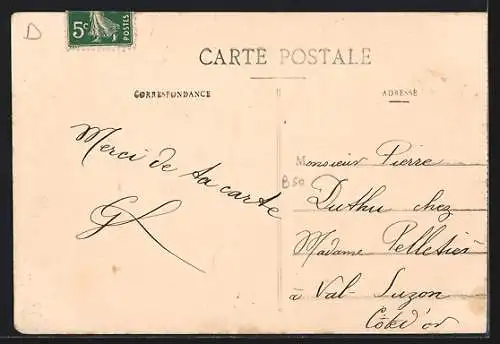 D
5c POSTES
CARTE POSTALE
CORRESPONDANCE
ADRESSE
Merci de ta carte
GL
Monsieur Pierre
B50
Duthu chez
Madame Pelletier
à Val-Suzon
Côte d'or